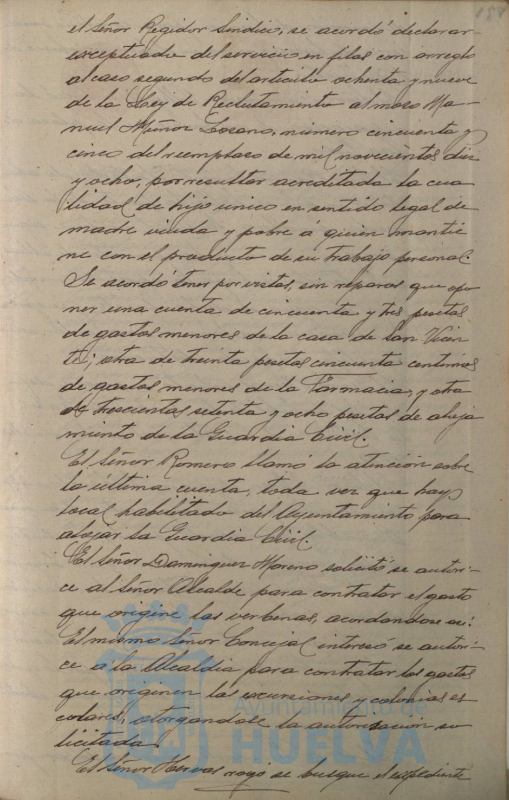 el Señor Regidor Sindico, se acordó declarar
exceptuado del servicio en filas con arreglo
al caso segundo del articulo ochenta y nueve
de la Ley de Reclutamiento al mozo Ma-
nuel Muñoz Lozano, número cincuenta y
cinco del reemplazo de mil novecientos diez
y ocho, por resultar acreditada la cua
lidad de hijo unico en sentido legal de
madre viuda y pobre á quien mantie
ne con el producto de su trabajo personal.
Se acordó tener por vistas, sin reparos que opo
ner una cuenta de cincuenta y tres pesetas
de gastos menores de la casa de San Vicen
te; otra de treinta pesetas cincuenta centimos
de gastos menores de la Farmacia, y otra
de trescientas setenta y ocho pesetas de aloja
miento de la Guardia Civil.
El Señor Romero llamó la atención sobre
la ultima cuenta, toda vez que hay
local habilitado del Ayuntamiento para
alojar la Guardia Civil.
El Señor Dominguez Moreno solicitó se autori-
ce al Señor Alcalde para contratar el gasto
que origine las verbenas, acordandose asi.
El mismo Señor Concejal interesó se autori-
ce á la Alcaldia para contratar los gastos
que originen las excursiones y colonias es
colares, otorgandose la autorización so
licitada.
El Señor Hervas rogó se busque el expediente
Ayuntamiento de
HUELVA